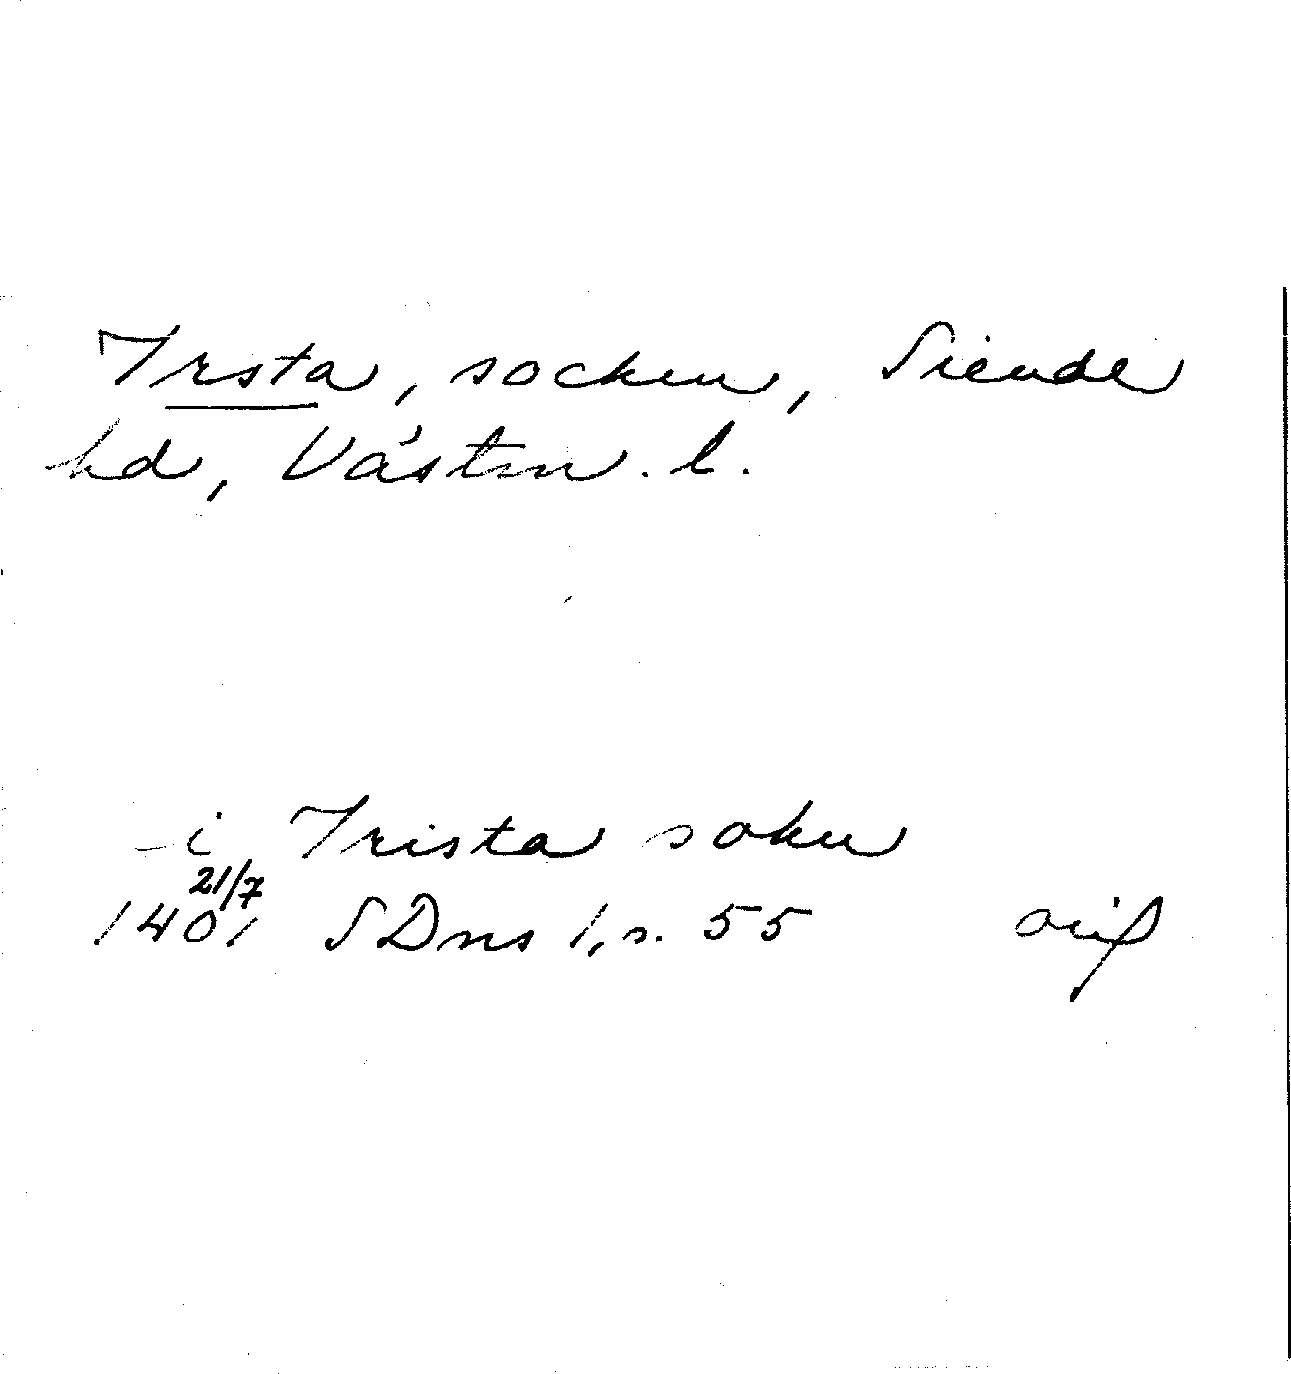 Irsta, socken, Siende
hd, Västm. l.
- i Irista sokn
21/7
1401 SDns 1, s. 55 orig